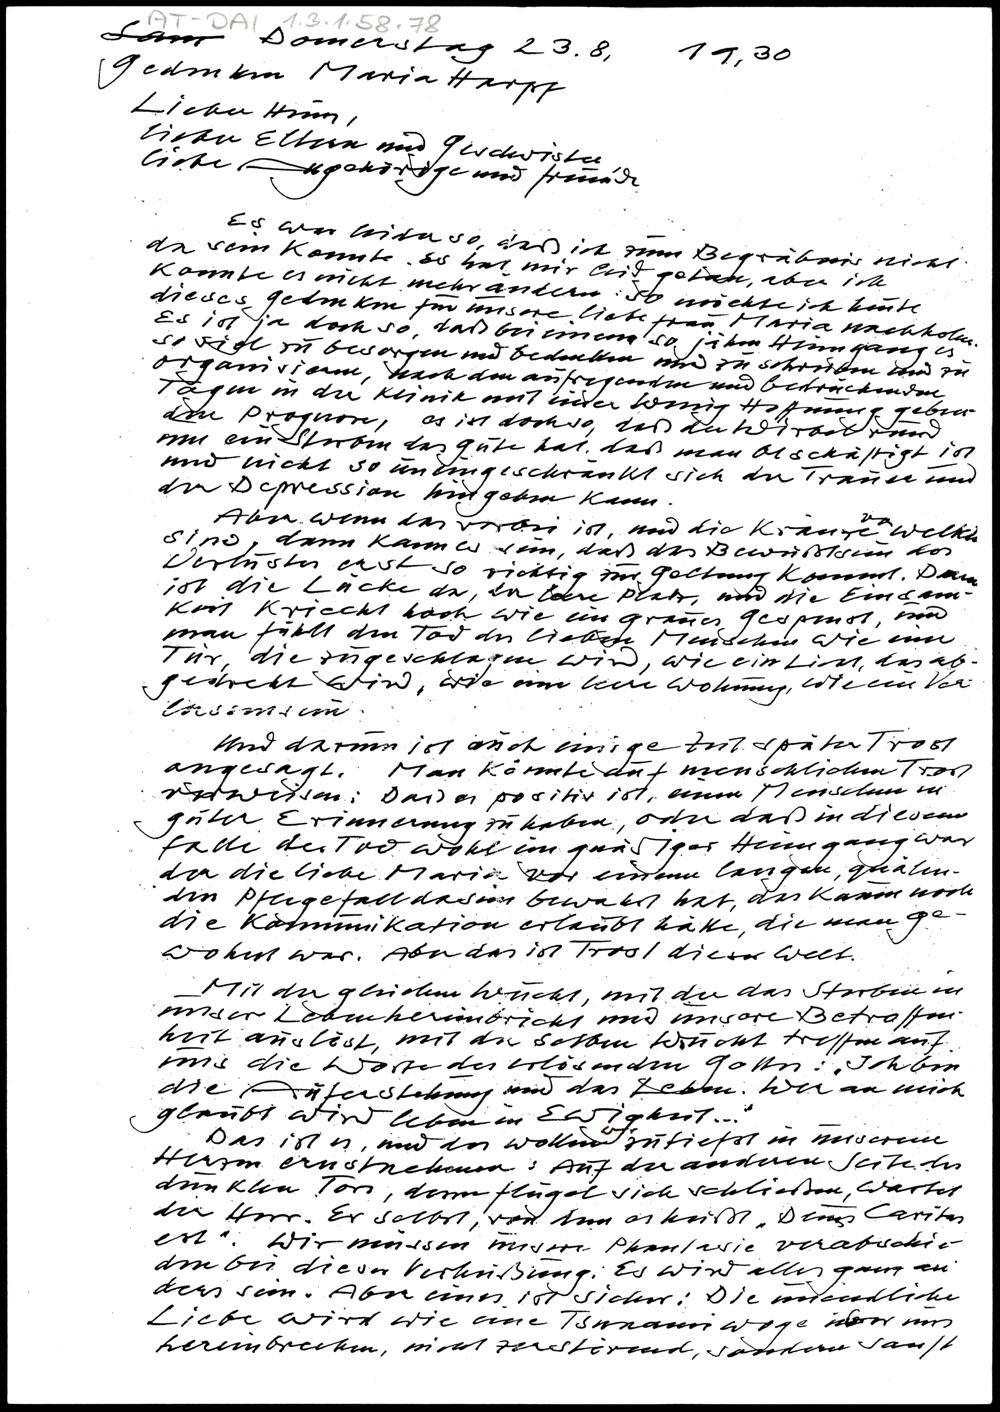 AT-DAI 1.3.1.58.78
Sam Donnerstag 23.8. 19,30
Gedenken Maria Harpf
Lieber Hans,
liebe Eltern und Geschwister
liebe Angehörige und Freunde
Es war leider so, daß ich zum Begräbnis nicht
da sein konnte. Es hat mir leid getan, aber ich
konnte es nicht mehr ändern. So möchte ich heute
dieses Gedenken für unsere liebe Frau Maria nachholen.
Es ist ja doch so, daß bei einem so jähen Heimgang es
so viel zu besorgen und bedenken und zu schreiben und zu
organisieren, nach den aufregenden und bedrückenden
Tagen in der Klinik mit einer wenig Hoffnung geben-
den Prognose, es ist doch so, daß der Wirbel rund
um ein Sterben das Gute hat, daß man beschäftigt ist
und nicht so uneingeschränkt sich der Trauer und
der Depression hingeben kann.
Aber wenn das vorbei ist, und die Kränze verwelkt
sind, dann kann es sein, daß das Bewußtsein des
Verlustes erst so richtig zur Geltung kommt. Dann
ist die Lücke da, der leere Platz, und die Einsam-
keit kriecht hoch wie ein graues Gespenst, und
man fühlt den Tod des lieben Menschen wie eine
Tür, die zugeschlagen wird, wie ein Licht, das ab-
gedreht wird, wie eine leere Wohnung, wie ein Ver-
lassensein.
Und darum ist auch einige Zeit später Trost
angesagt. Man könnte auf menschlichen Trost
verweisen: Daß es positiv ist, einen Menschen in
guter Erinnerung zu haben, oder daß in diesem
Falle der Tod wohl ein gnädiger Heimgang war
der die liebe Maria vor einem langen, quälen-
den Pflegefalldasein bewahrt hat, das kaum noch
die Kommunikation erlaubt hätte, die man ge-
wohnt war. Aber das ist Trost dieser Welt.
Mit der gleichen Wucht, mit der das Sterben in
unser Leben hereinbricht und unsere Betroffen-
heit auslöst, mit der selben Wucht treffen auf
uns die Worte des erlösenden Gottes: „Ich bin
die Auferstehung und das Leben. Wer an mich
glaubt wird leben in Ewigkeit..."
Das ist es, und das wollen wir zutiefst in unserem
Herzen ernstnehmen: Auf der anderen Seite des
dunklen Tors, dessen Flügel sich schließen, wartet
der Herr. Er selbst, von dem es heißt „Deus Caritas
est". Wir müssen unsere Phantasie verabschie-
den bei dieser Verheißung. Es wird alles ganz an-
ders sein. Aber eines ist sicher: Die unendliche
Liebe wird wie eine Tsunamiwoge über uns
hereinbrechen, nicht zerstörend, sondern sanft